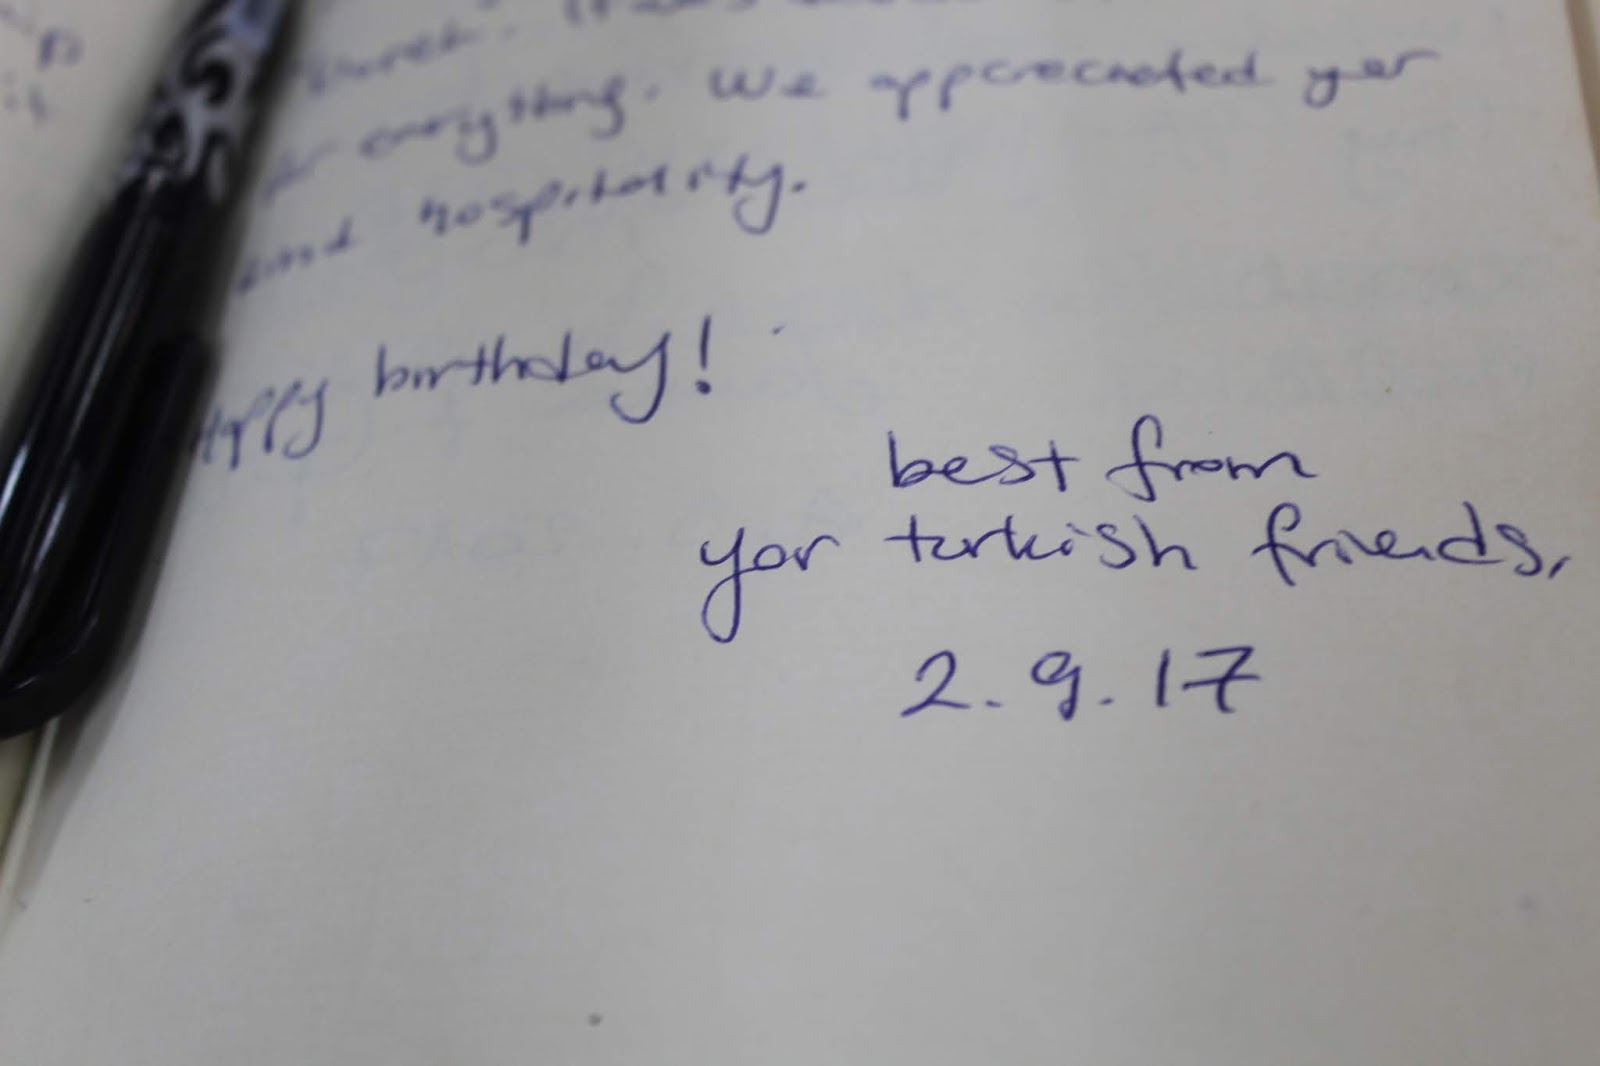 everything. We appreciated yor
and hospitality.
Happy birthday!
best from
yor turkish friends,
2.9.17